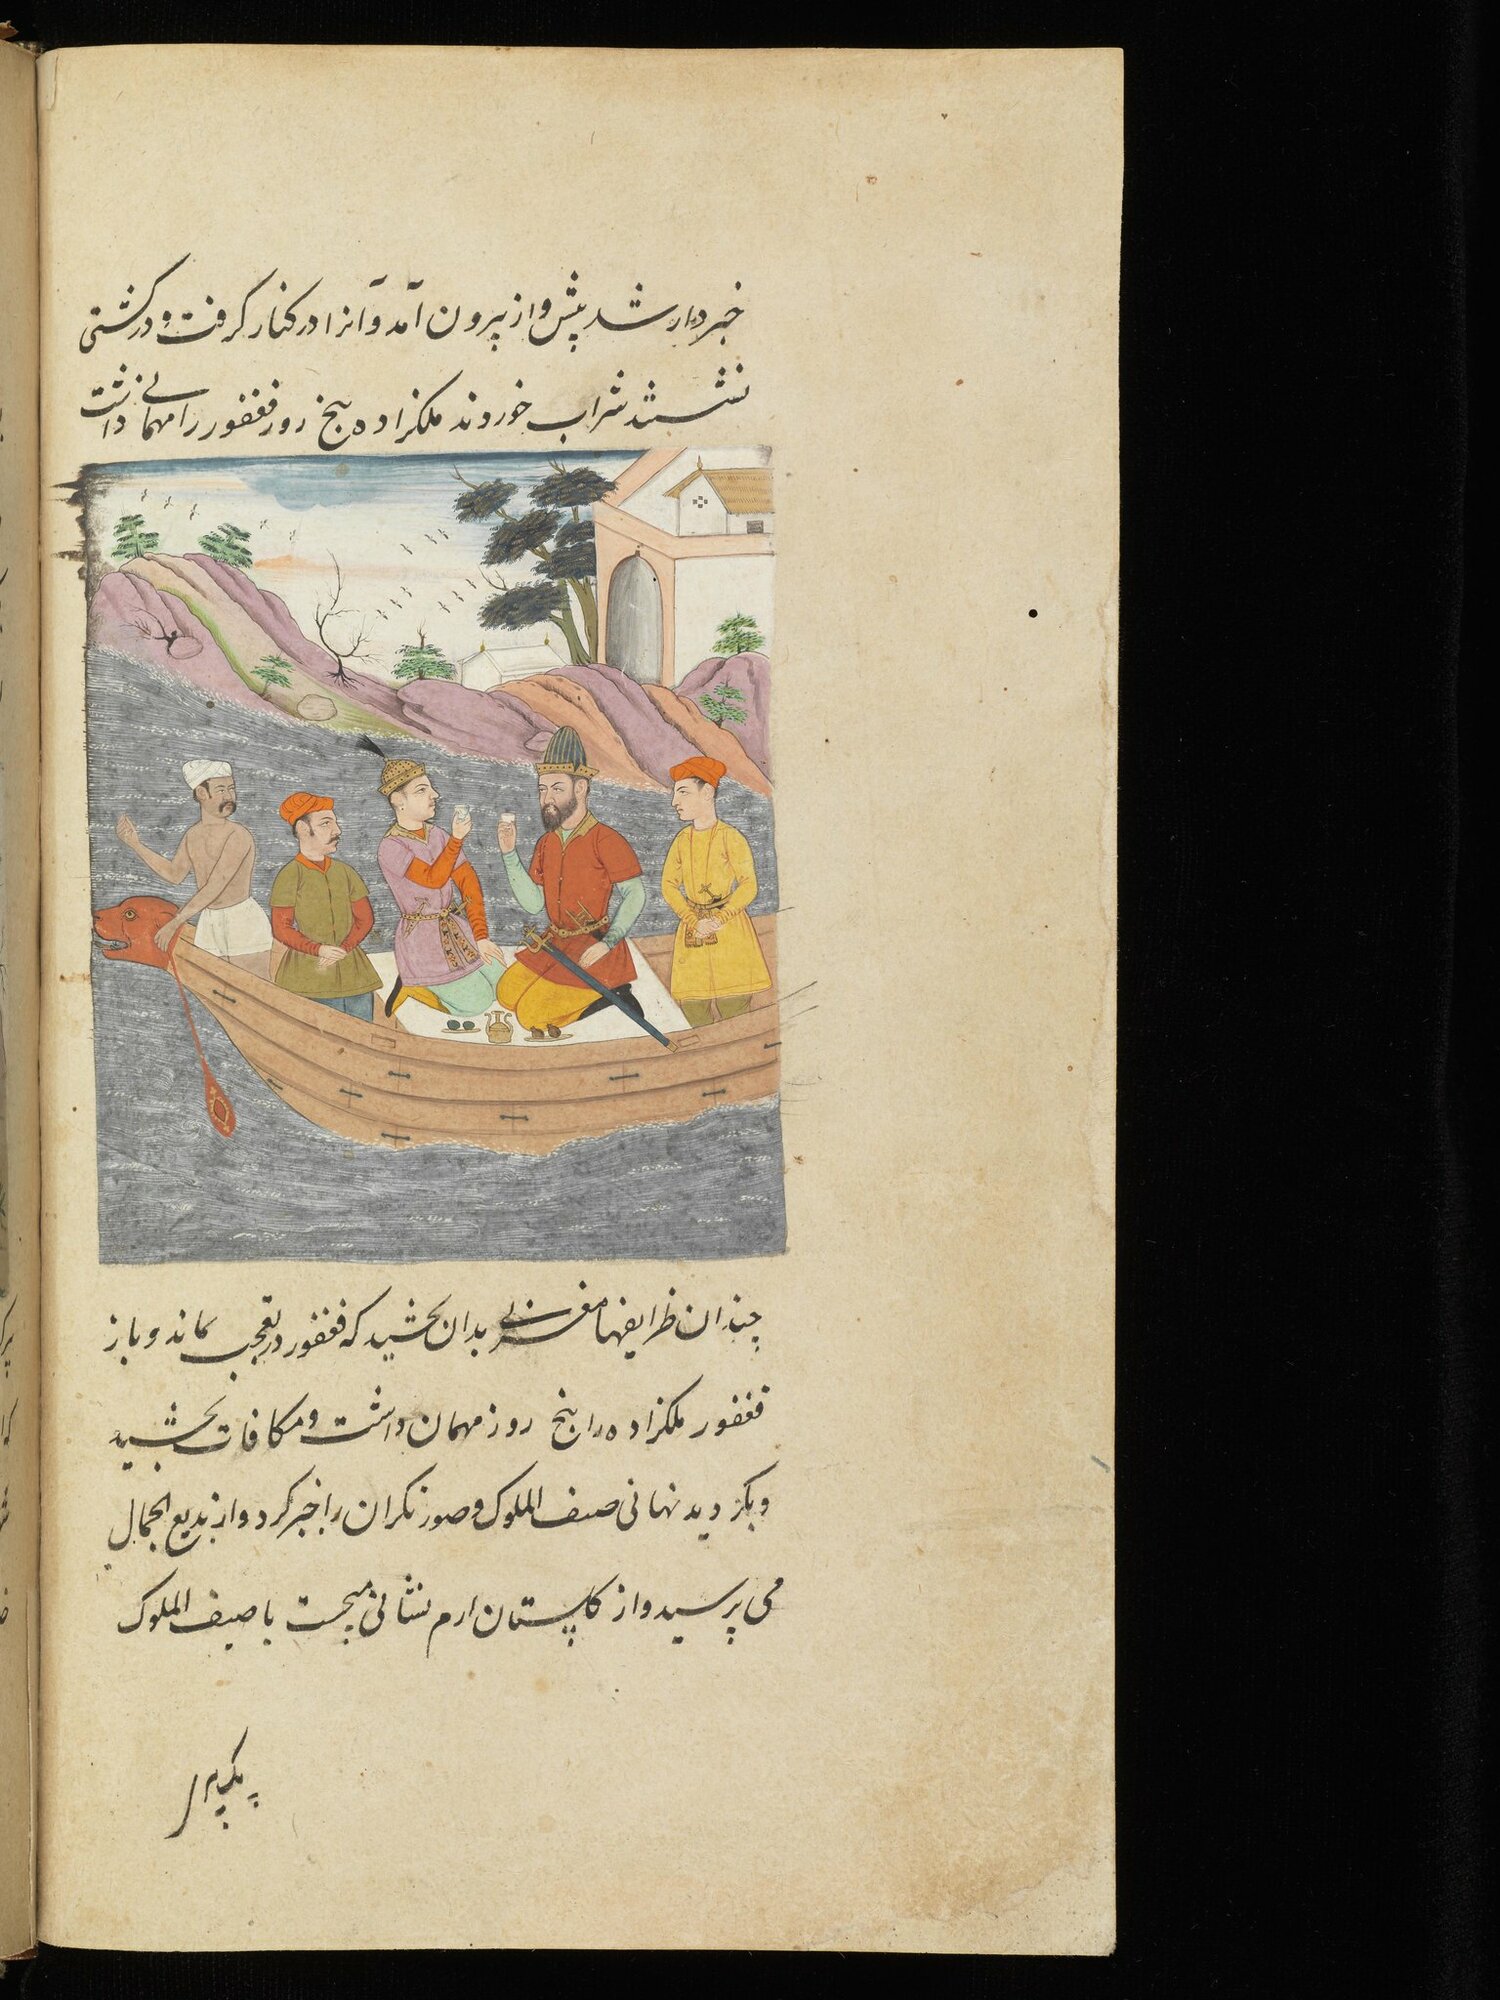 خبردار شد پیش واز بیرون آمد و آنرا در کنار گرفت و در کشتی
نشستند شراب خوردند ملکزاده پنج روز فغفور را مهمانی داشت
چندان ظرایفها مغربی بدان بخشید که فغفور در تعجب بماند و باز
فغفور ملکزاده را پنج روز مهمان داشت و مکافات بخشید
و بگردید نهانی صیف الملوک و صورتگران را خبر کرد و از بدیع الجمال
می پرسید و از گلستان ارم نشانی میجست با صیف الملوک